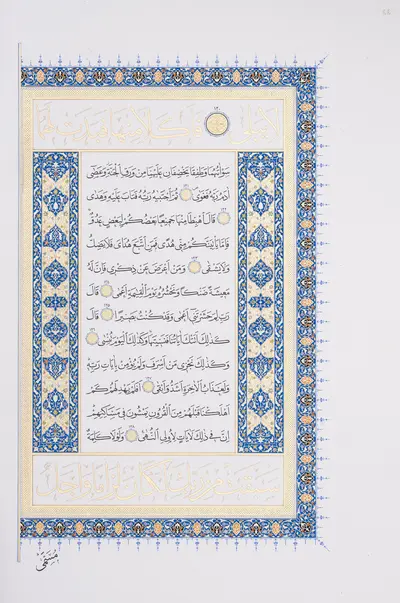 لَا يَبْلَىٰ ١٢٠ فَأَكَلَا مِنْهَا فَبَدَتْ لَهُمَا
سَوْآتُهُمَا وَطَفِقَا يَخْصِفَانِ عَلَيْهِمَا مِنْ وَرَقِ الْجَنَّةِ وَعَصَىٰ
آدَمُ رَبَّهُ فَغَوَىٰ ١٢١ ثُمَّ اجْتَبَاهُ رَبُّهُ فَتَابَ عَلَيْهِ وَهَدَىٰ
١٢٢ قَالَ اهْبِطَا مِنْهَا جَمِيعًا بَعْضُكُمْ لِبَعْضٍ عَدُوٌّ
فَإِمَّا يَأْتِيَنَّكُمْ مِنِّي هُدًى فَمَنِ اتَّبَعَ هُدَايَ فَلَا يَضِلُّ
وَلَا يَشْقَىٰ ١٢٣ وَمَنْ أَعْرَضَ عَنْ ذِكْرِي فَإِنَّ لَهُ
مَعِيشَةً ضَنْكًا وَنَحْشُرُهُ يَوْمَ الْقِيٰمَةِ أَعْمَىٰ ١٢٤ قَالَ
رَبِّ لِمَ حَشَرْتَنِي أَعْمَىٰ وَقَدْ كُنْتُ بَصِيرًا ١٢٥ قَالَ
كَذٰلِكَ أَتَتْكَ آيَاتُنَا فَنَسِيتَهَا وَكَذٰلِكَ الْيَوْمَ تُنْسَىٰ ١٢٦
وَكَذٰلِكَ نَجْزِي مَنْ أَسْرَفَ وَلَمْ يُؤْمِنْ بِآيَاتِ رَبِّهِ
وَلَعَذَابُ الْآخِرَةِ أَشَدُّ وَأَبْقَىٰ ١٢٧ أَفَلَمْ يَهْدِ لَهُمْ كَمْ
أَهْلَكْنَا قَبْلَهُمْ مِنَ الْقُرُونِ يَمْشُونَ فِي مَسَاكِنِهِمْ
إِنَّ فِي ذٰلِكَ لَآيَاتٍ لِأُولِي النُّهَىٰ ١٢٨ وَلَوْلَا كَلِمَةٌ
سَبَقَتْ مِنْ رَبِّكَ لَكَانَ لِزَامًا وَأَجَلٌ
مُسَمًّى